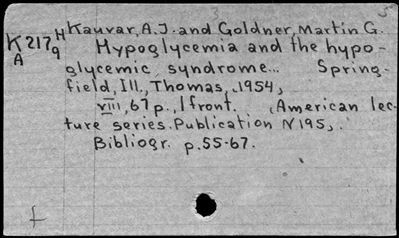 H Kauvar, A.J. and Goldner, Martin G.
K 217 9 Hypoglycemia and the hypo-
A
glycemic syndrome... Spring-
field, Ill., Thomas, 1954,
viii, 67 p., 1 front. (American lec-
ture series. Publication N 195).
Bibliogr. p. 55-67.